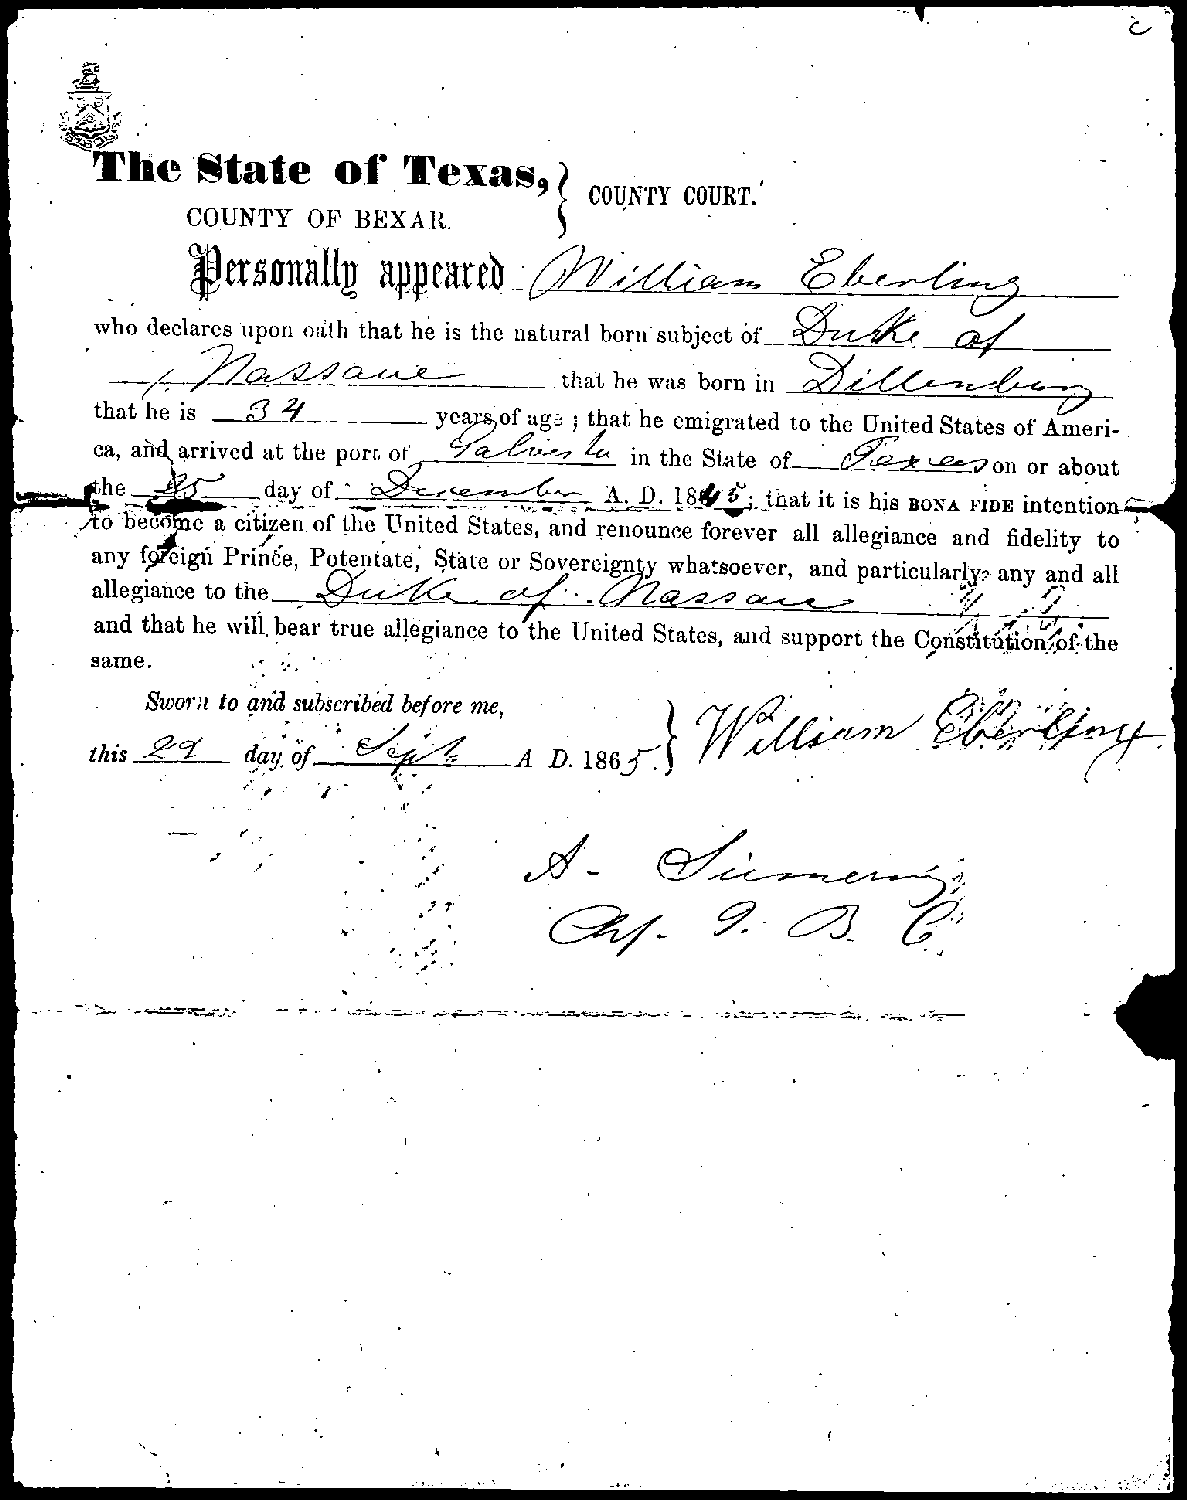 The State of Texas, } COUNTY COURT.
COUNTY OF BEXAR.
Personally appeared William Eberling
who declares upon oath that he is the natural born subject of Duke of
Nassaue that he was born in Dillenburg
that he is 34 years of age ; that he emigrated to the United States of Ameri-
ca, and arrived at the port of Galveston in the State of Texas on or about
the 25 day of December A. D. 1845; that it is his BONA FIDE intention
to become a citizen of the United States, and renounce forever all allegiance and fidelity to
any foreign Prince, Potentate, State or Sovereignty whatsoever, and particularly any and all
allegiance to the Duke of Nassau
and that he will bear true allegiance to the United States, and support the Constitution of the
same.
Sworn to and subscribed before me,
this 29 day of Sept A D. 1865. } William Eberling
A.
J. B. C.